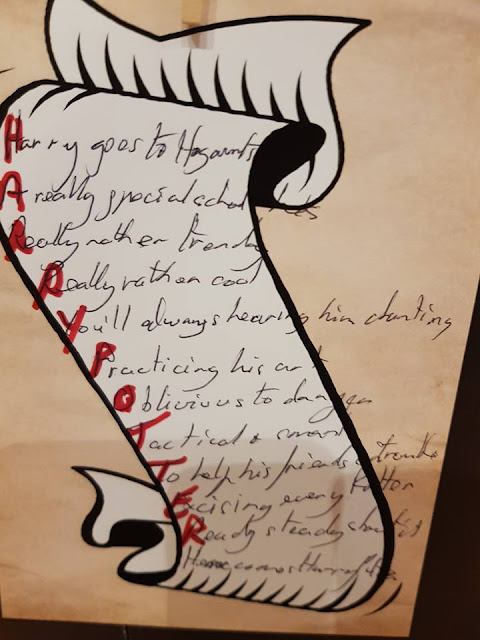 Harry goes to Hogwarts
A really special school
Really rather trendy
Really rather cool
You'll always hearing him chanting
Practicing his art
Oblivious to danger
Tactical & smart
To help his friends
Excising every
Ready steady
Here comes Harry